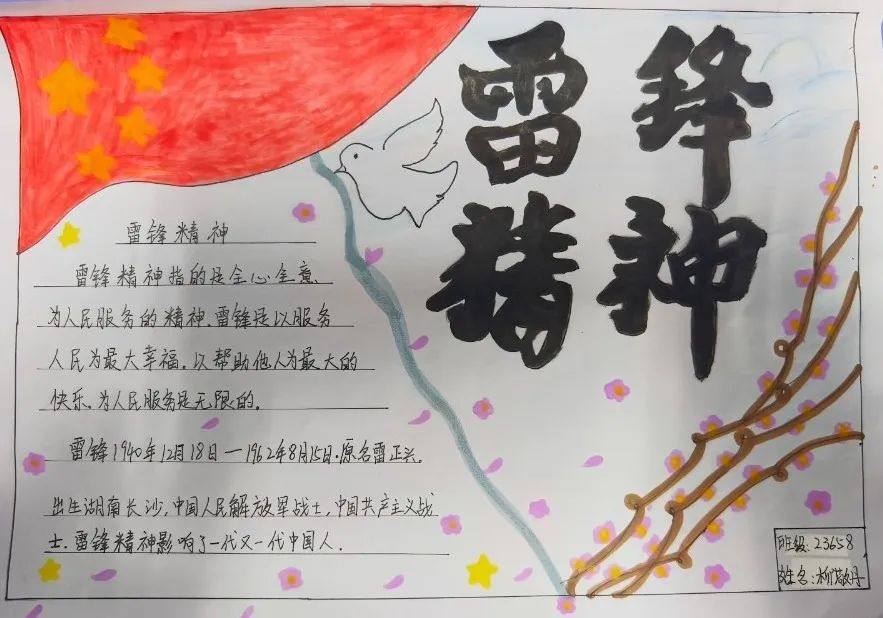 雷锋
精神
雷锋精神
雷锋精神指的是全心全意、
为人民服务的精神.雷锋是以服务
人民为最大幸福.以帮助他人为最大的
快乐、为人民服务是无限的。
雷锋1940年12月18日—1962年8月15日.原名雷正兴.
出生湖南长沙,中国人民解放军战士,中国共产主义战
士.雷锋精神影响了一代又一代中国人.
班级:23658
姓名:柳